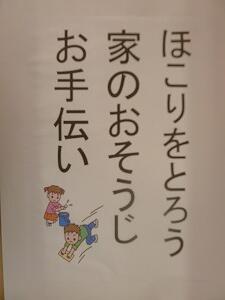 ほこりをとろう
家のおそうじ
お手伝い